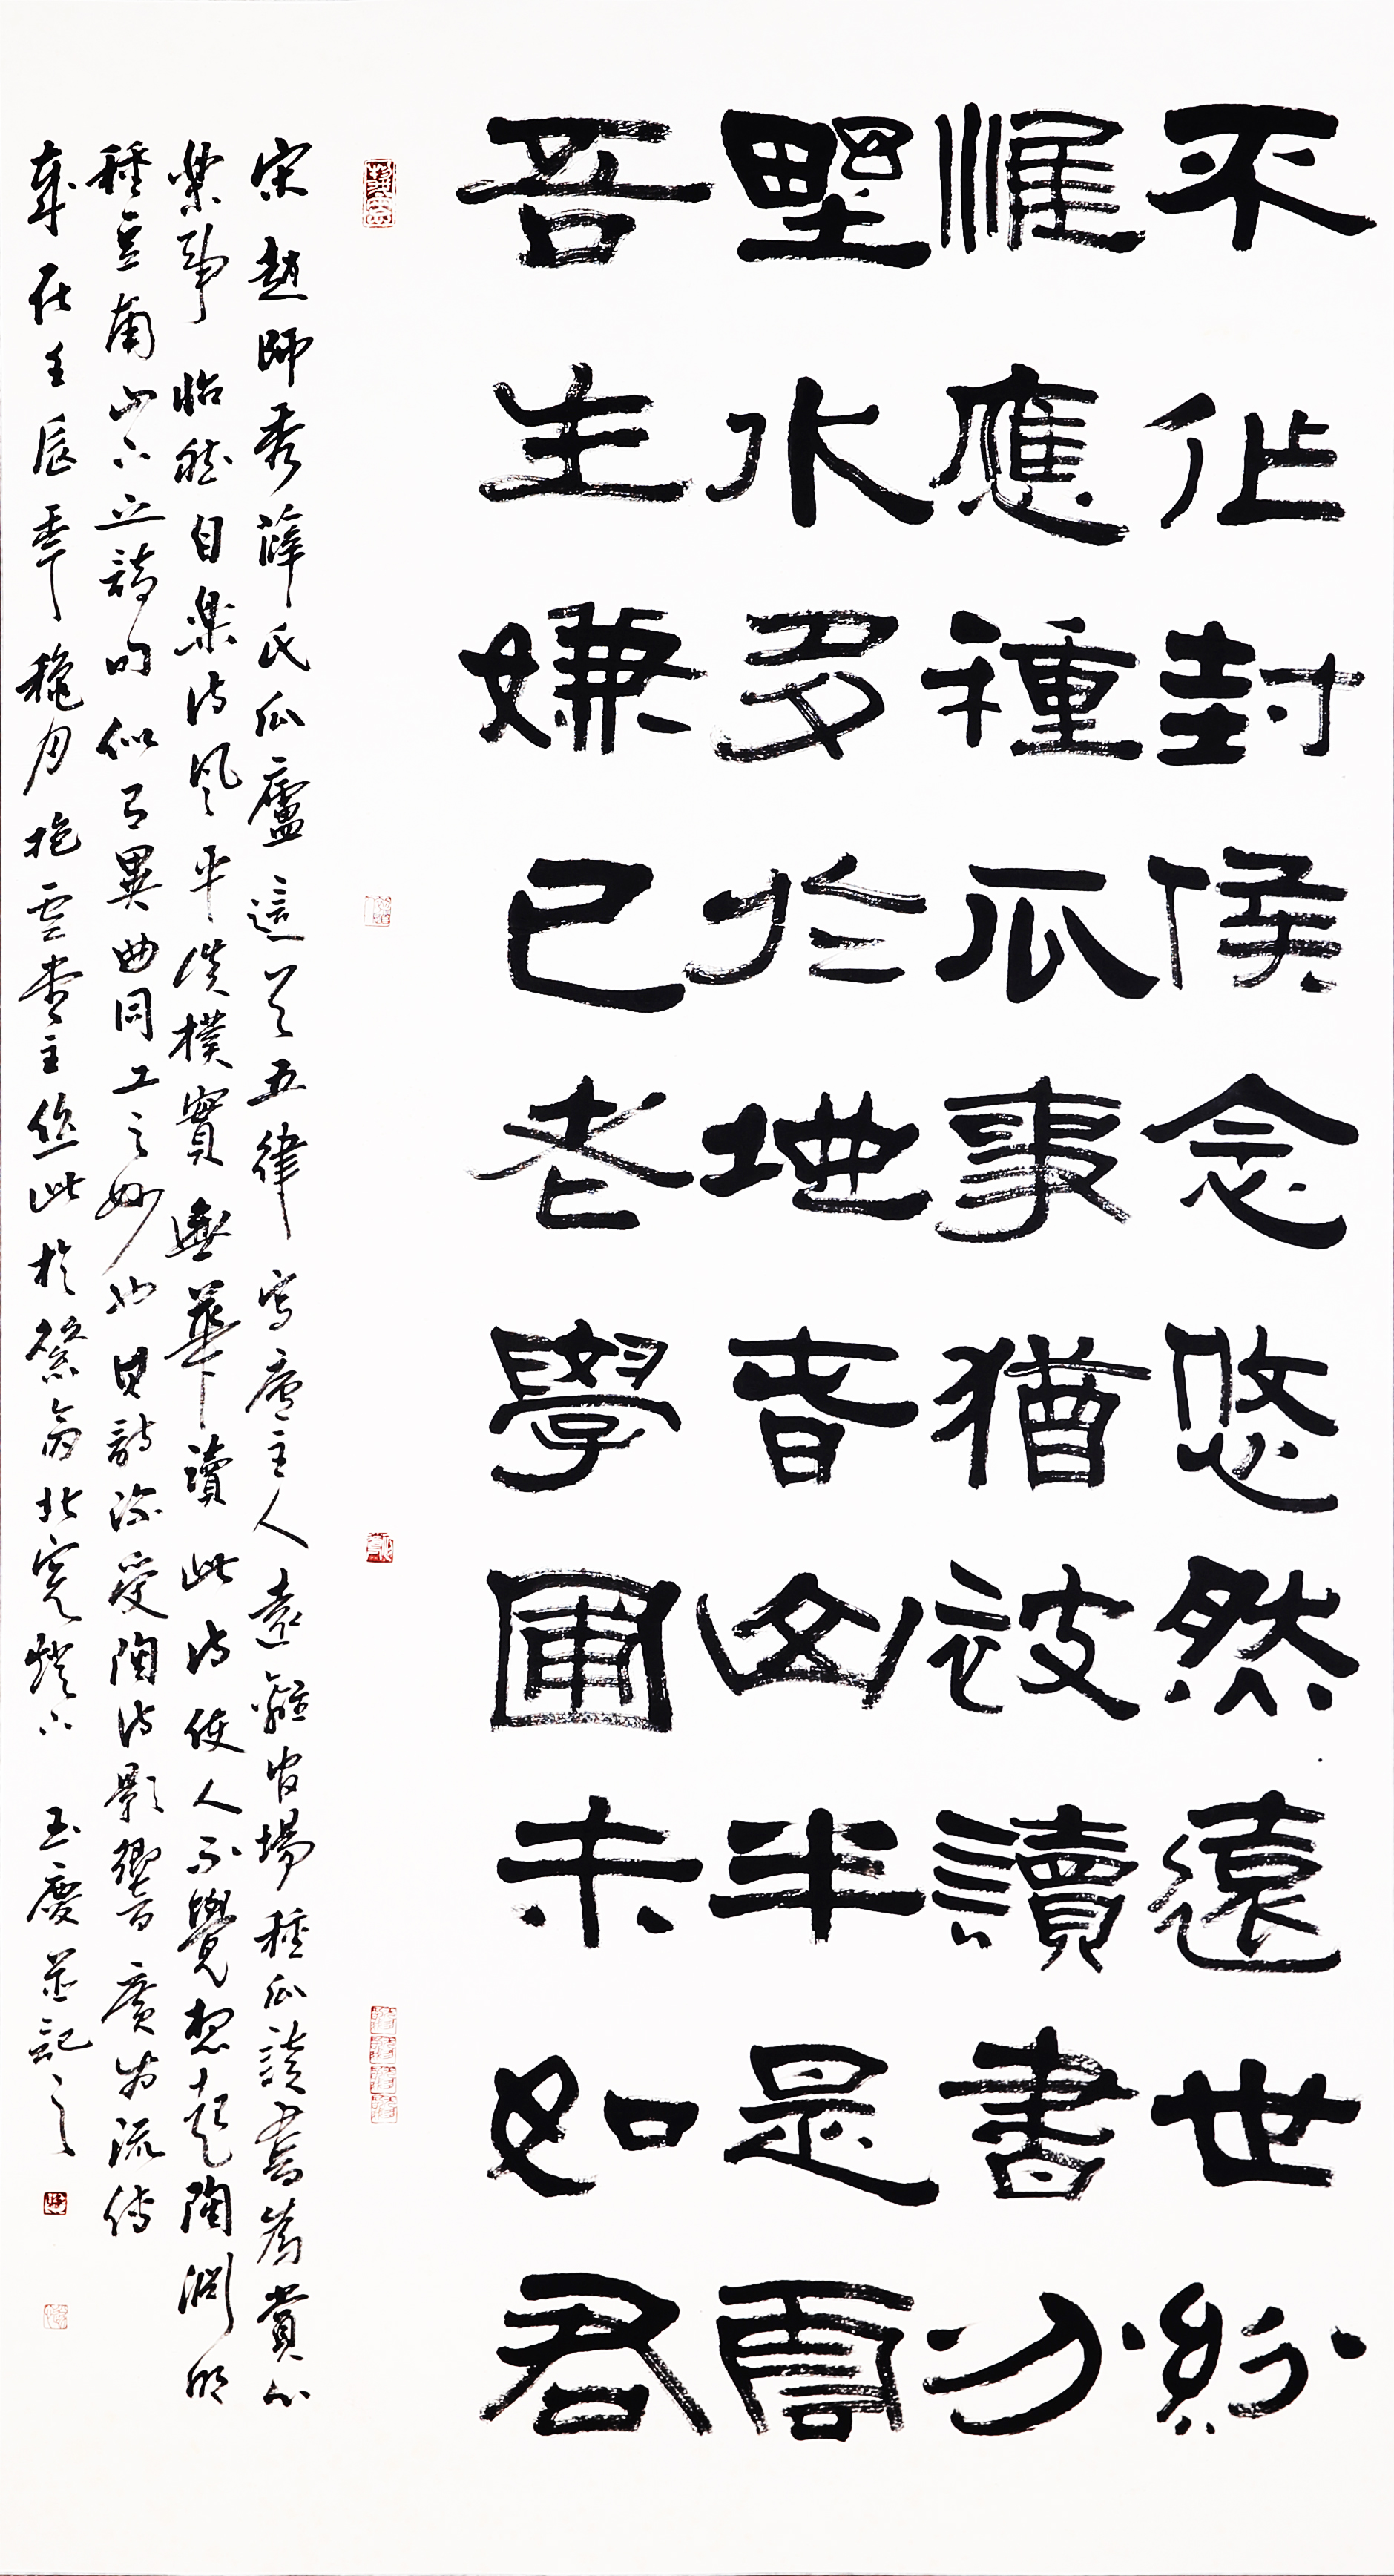 不作封侯念悠然遠世紛
惟應種瓜事猶被讀書分
野水多於地春山半是雲
吾生嫌已老學圃未如君
宋趙師秀薛氏瓜廬這首五律寫廬主人遠離官場種瓜讀書為賞心
樂事怡然自樂詩風平淡樸實無華下讀此詩使人不覺想起陶淵明
種豆南山下之詩句似有異曲同工之妙也其詩深受陶詩影響廣為流傳
歲在壬辰年龝月抱雲齋主作此於北窗燈下玉慶並記之